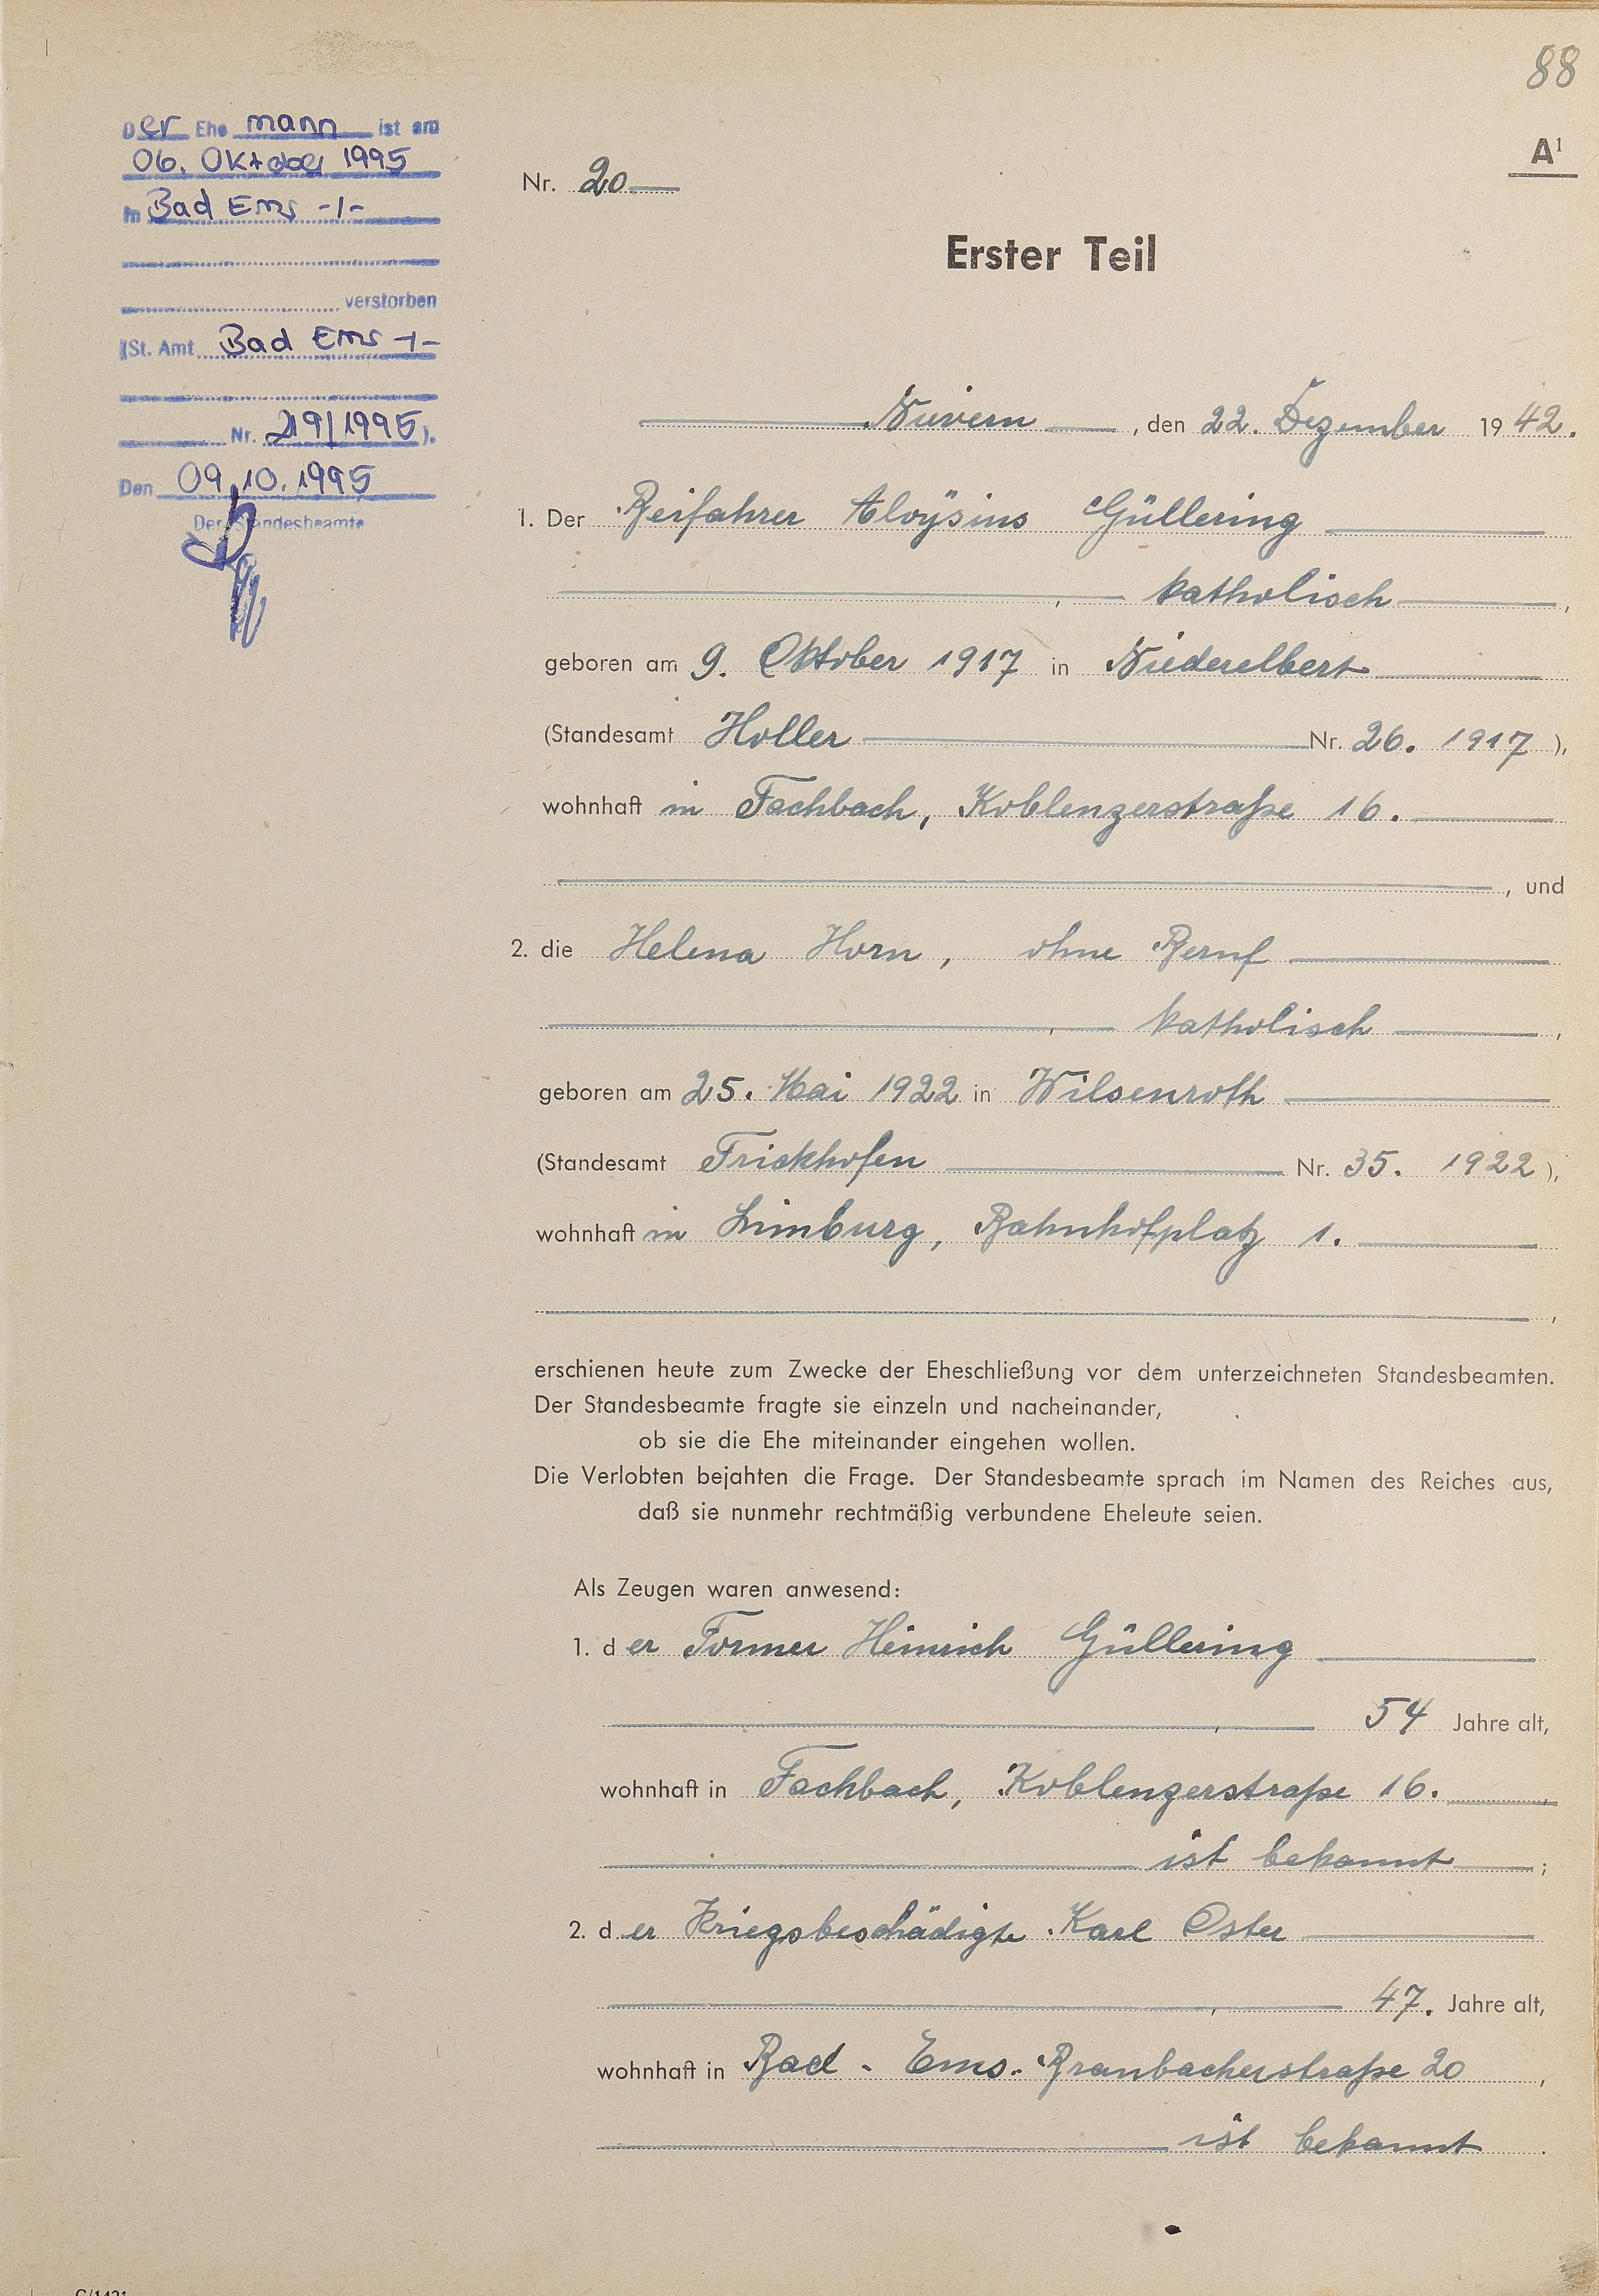 88
A¹
Der Ehe mann ist am
06. Oktober 1995
in Bad Ems -/-
verstorben
(St. Amt Bad Ems -/-
Nr. 219/1995).
Den 09.10.1995
Der Standesbeamte
Nr. 20
Erster Teil
Nievern, den 22. Dezember 1942.
1. Der Beifahrer Aloÿsius Güllering
, katholisch,
geboren am 9. Oktober 1917 in Niederelbert
(Standesamt Holler Nr. 26. 1917),
wohnhaft in Fachbach, Koblenzerstraße 16.
, und
2. die Helena Horn, ohne Beruf
, katholisch,
geboren am 25. Mai 1922 in Wilsenroth
(Standesamt Frickhofen Nr. 35. 1922),
wohnhaft in Limburg, Bahnhofplatz 1.
,
erschienen heute zum Zwecke der Eheschließung vor dem unterzeichneten Standesbeamten.
Der Standesbeamte fragte sie einzeln und nacheinander,
ob sie die Ehe miteinander eingehen wollen.
Die Verlobten bejahten die Frage. Der Standesbeamte sprach im Namen des Reiches aus,
daß sie nunmehr rechtmäßig verbundene Eheleute seien.
Als Zeugen waren anwesend:
1. der Former Heinrich Güllering
, 54 Jahre alt,
wohnhaft in Fachbach, Koblenzerstraße 16.
ist bekannt;
2. der Kriegsbeschädigte Karl Oster
, 47. Jahre alt,
wohnhaft in Bad - Ems. Braubacherstraße 20,
ist bekannt.